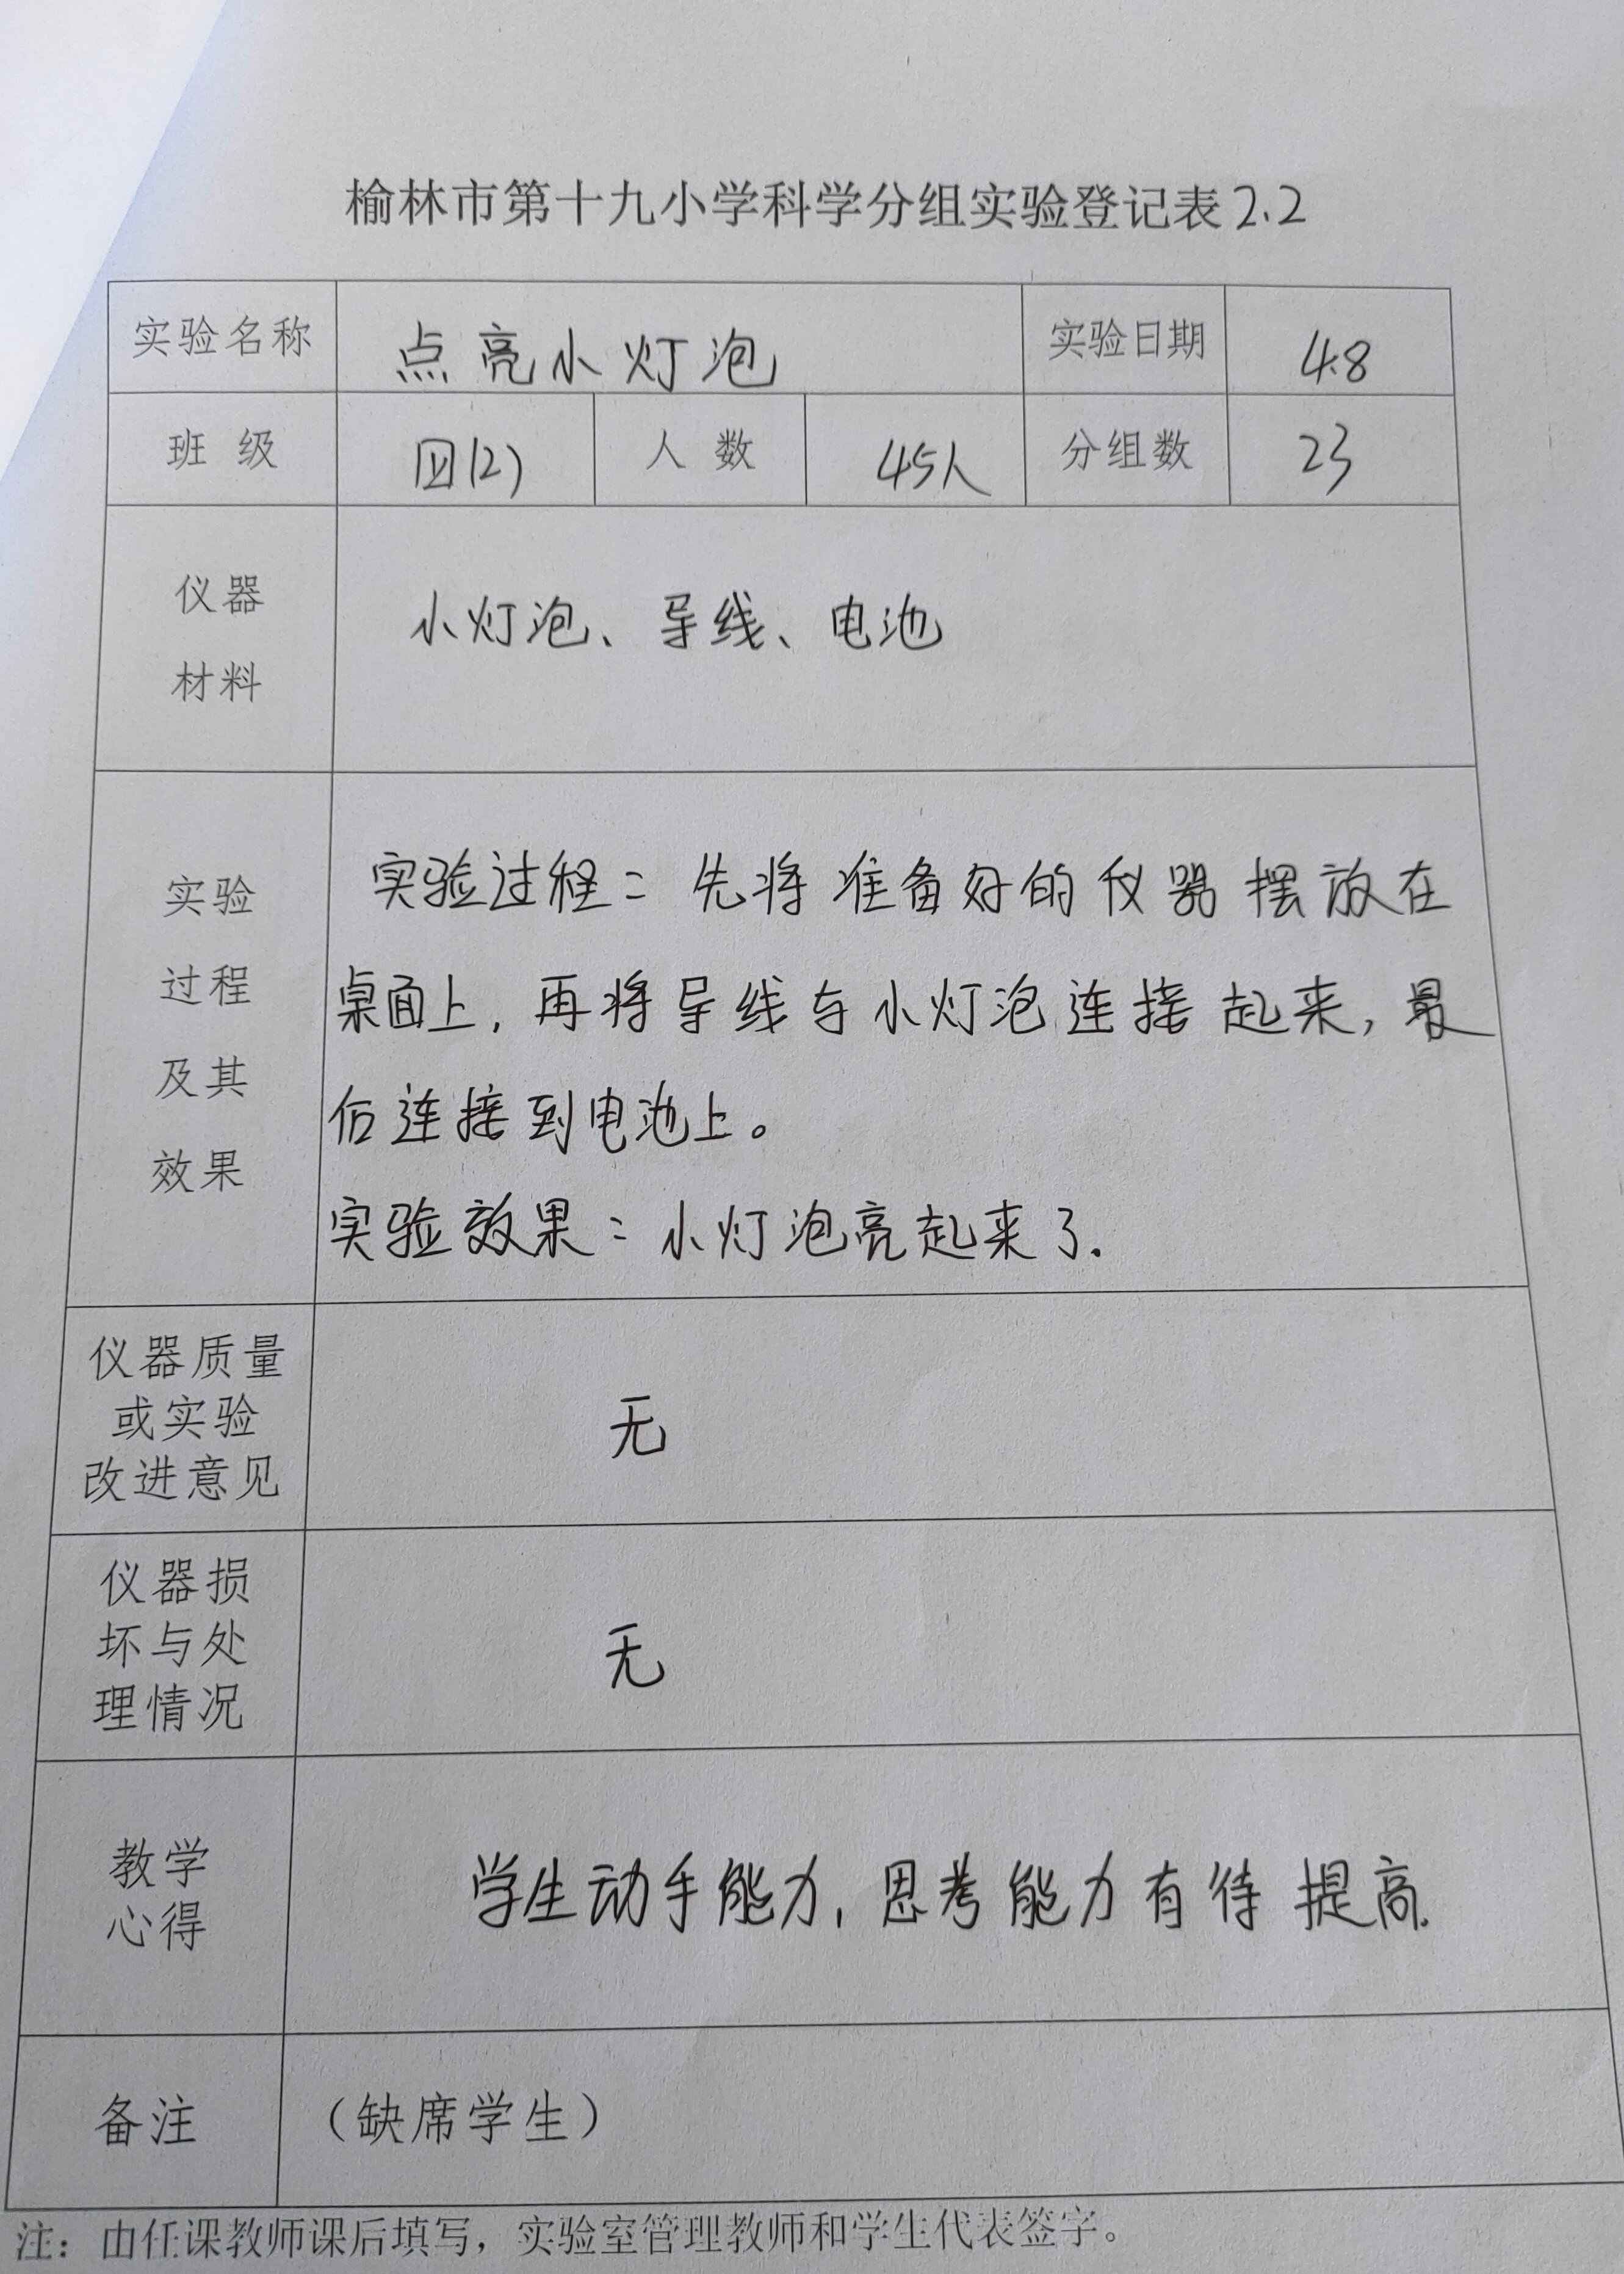 榆林市第十九小学科学分组实验登记表2.2
实验名称 点亮小灯泡 实验日期 4.8
班 级 四(2) 人 数 45人 分组数 23
仪器
材料
小灯泡、导线、电池
实验
过程
及其
效果
实验过程：先将准备好的仪器摆放在
桌面上，再将导线与小灯泡连接起来，最
后连接到电池上。
实验效果：小灯泡亮起来了.
仪器质量
或实验
改进意见
无
仪器损
坏与处
理情况
无
教学
心得
学生动手能力，思考能力有待提高.
备注 （缺席学生）
注：由任课教师课后填写，实验室管理教师和学生代表签字。